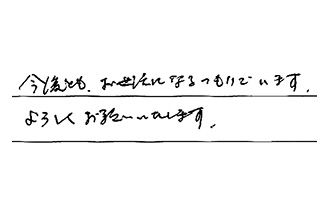 今後とも、お世話になるつもりでいます。
よろしくお願いいたします。